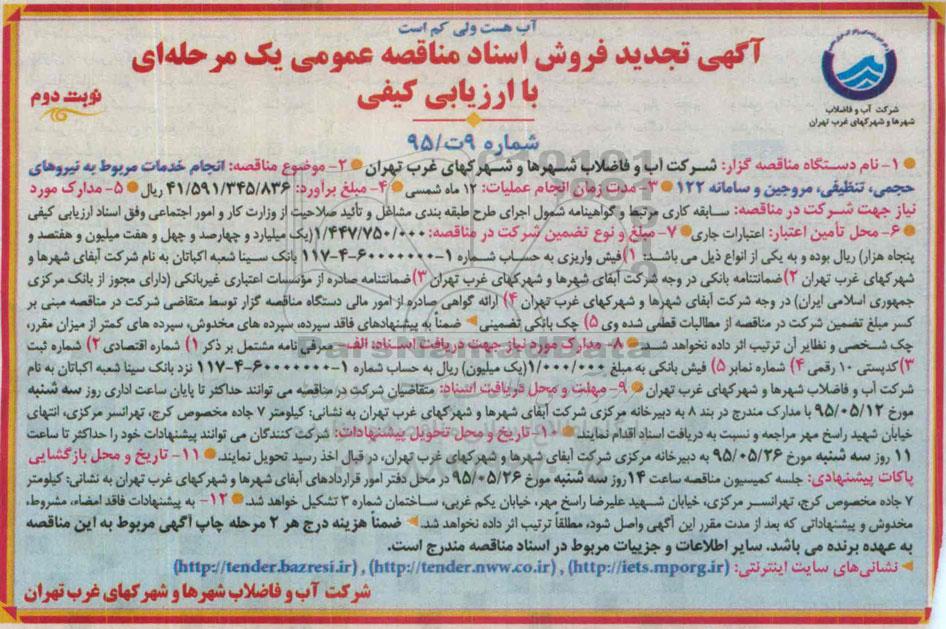 آب هست ولی کم است
آگهی تجدید فروش اسناد مناقصه عمومی یک مرحله‌ای
با ارزیابی کیفی
نوبت دوم
شرکت آب و فاضلاب
شهرها و شهرکهای غرب تهران
شماره ۹ت/۹۵
۱- نام دستگاه مناقصه گزار: شرکت آب و فاضلاب شهرها و شهرکهای غرب تهران ۲- موضوع مناقصه: انجام خدمات مربوط به نیروهای
حجمی، تنظیفی، مروجین و سامانه ۱۲۲ ۳- مدت زمان انجام عملیات: ۱۲ ماه شمسی ۴- مبلغ برآورد: ۴۱/۵۹۱/۳۴۵/۸۳۶ ریال ۵- مدارک مورد
نیاز جهت شرکت در مناقصه: سابقه کاری مرتبط و گواهینامه شمول اجرای طرح طبقه بندی مشاغل و تأئید صلاحیت از وزارت کار و امور اجتماعی وفق اسناد ارزیابی کیفی
۶- محل تأمین اعتبار: اعتبارات جاری ۷- مبلغ و نوع تضمین شرکت در مناقصه: ۱/۴۴۷/۷۵۰/۰۰۰(یک میلیارد و چهارصد و چهل و هفت میلیون و هفتصد و
پنجاه هزار) ریال بوده و به یکی از انواع ذیل می باشد: ۱)فیش واریزی به حساب شماره ۱-۶۰۰۰۰۰۰۰-۴-۱۱۷ بانک سینا شعبه اکباتان به نام شرکت آبفای شهرها و
شهرکهای غرب تهران ۲)ضمانتنامه بانکی در وجه شرکت آبفای شهرها و شهرکهای غرب تهران ۳)ضمانتنامه صادره از مؤسسات اعتباری غیربانکی (دارای مجوز از بانک مرکزی
جمهوری اسلامی ایران) در وجه شرکت آبفای شهرها و شهرکهای غرب تهران ۴) ارائه گواهی صادره از امور مالی دستگاه مناقصه گزار توسط متقاضی شرکت در مناقصه مبنی بر
کسر مبلغ تضمین شرکت در مناقصه از مطالبات قطعی شده وی ۵) چک بانکی تضمینی ضمناً به پیشنهادهای فاقد سپرده، سپرده های مخدوش، سپرده های کمتر از میزان مقرر،
چک شخصی و نظایر آن ترتیب اثر داده نخواهد شد. ۸- مدارک مورد نیاز جهت دریافت اسناد: الف- معرفی نامه مشتمل بر ذکر ۱) شماره اقتصادی ۲) شماره ثبت
۳)کدپستی ۱۰ رقمی ۴) شماره نمابر ۵) فیش بانکی به مبلغ ۱/۰۰۰/۰۰۰(یک میلیون) ریال به حساب شماره ۱-۶۰۰۰۰۰۰۰-۴-۱۱۷ نزد بانک سینا شعبه اکباتان به نام
شرکت آب و فاضلاب شهرها و شهرکهای غرب تهران ۹- مهلت و محل دریافت اسناد: متقاضیان شرکت در مناقصه می توانند حداکثر تا پایان ساعت اداری روز سه شنبه
مورخ ۹۵/۰۵/۱۲ با مدارک مندرج در بند ۸ به دبیرخانه مرکزی شرکت آبفای شهرها و شهرکهای غرب تهران به نشانی: کیلومتر ۷ جاده مخصوص کرج، تهرانسر مرکزی، انتهای
خیابان شهید راسخ مهر مراجعه و نسبت به دریافت اسناد اقدام نمایند. ۱۰- تاریخ و محل تحویل پیشنهادات: شرکت کنندگان می توانند پیشنهادات خود را حداکثر تا ساعت
۱۱ روز سه شنبه مورخ ۹۵/۰۵/۲۶ به دبیرخانه مرکزی شرکت آبفای شهرها و شهرکهای غرب تهران، در قبال اخذ رسید تحویل نمایند. ۱۱- تاریخ و محل بازگشایی
پاکات پیشنهادی: جلسه کمیسیون مناقصه ساعت ۱۴ روز سه شنبه مورخ ۹۵/۰۵/۲۶ در محل دفتر امور قراردادهای آبفای شهرها و شهرکهای غرب تهران به نشانی: کیلومتر
۷ جاده مخصوص کرج، تهرانسر مرکزی، خیابان شهید علیرضا راسخ مهر، خیابان یکم غربی، ساختمان شماره ۳ تشکیل خواهد شد. ۱۲- به پیشنهادات فاقد امضاء، مشروط،
مخدوش و پیشنهاداتی که بعد از مدت مقرر این آگهی واصل شود، مطلقاً ترتیب اثر داده نخواهد شد. ضمناً هزینه درج هر ۲ مرحله چاپ آگهی مربوط به این مناقصه
به عهده برنده می باشد. سایر اطلاعات و جزییات مربوط در اسناد مناقصه مندرج است.
نشانی‌های سایت اینترنتی: (http://iets.mporg.ir) , (http://tender.nww.co.ir) , (http://tender.bazresi.ir)
شرکت آب و فاضلاب شهرها و شهرکهای غرب تهران